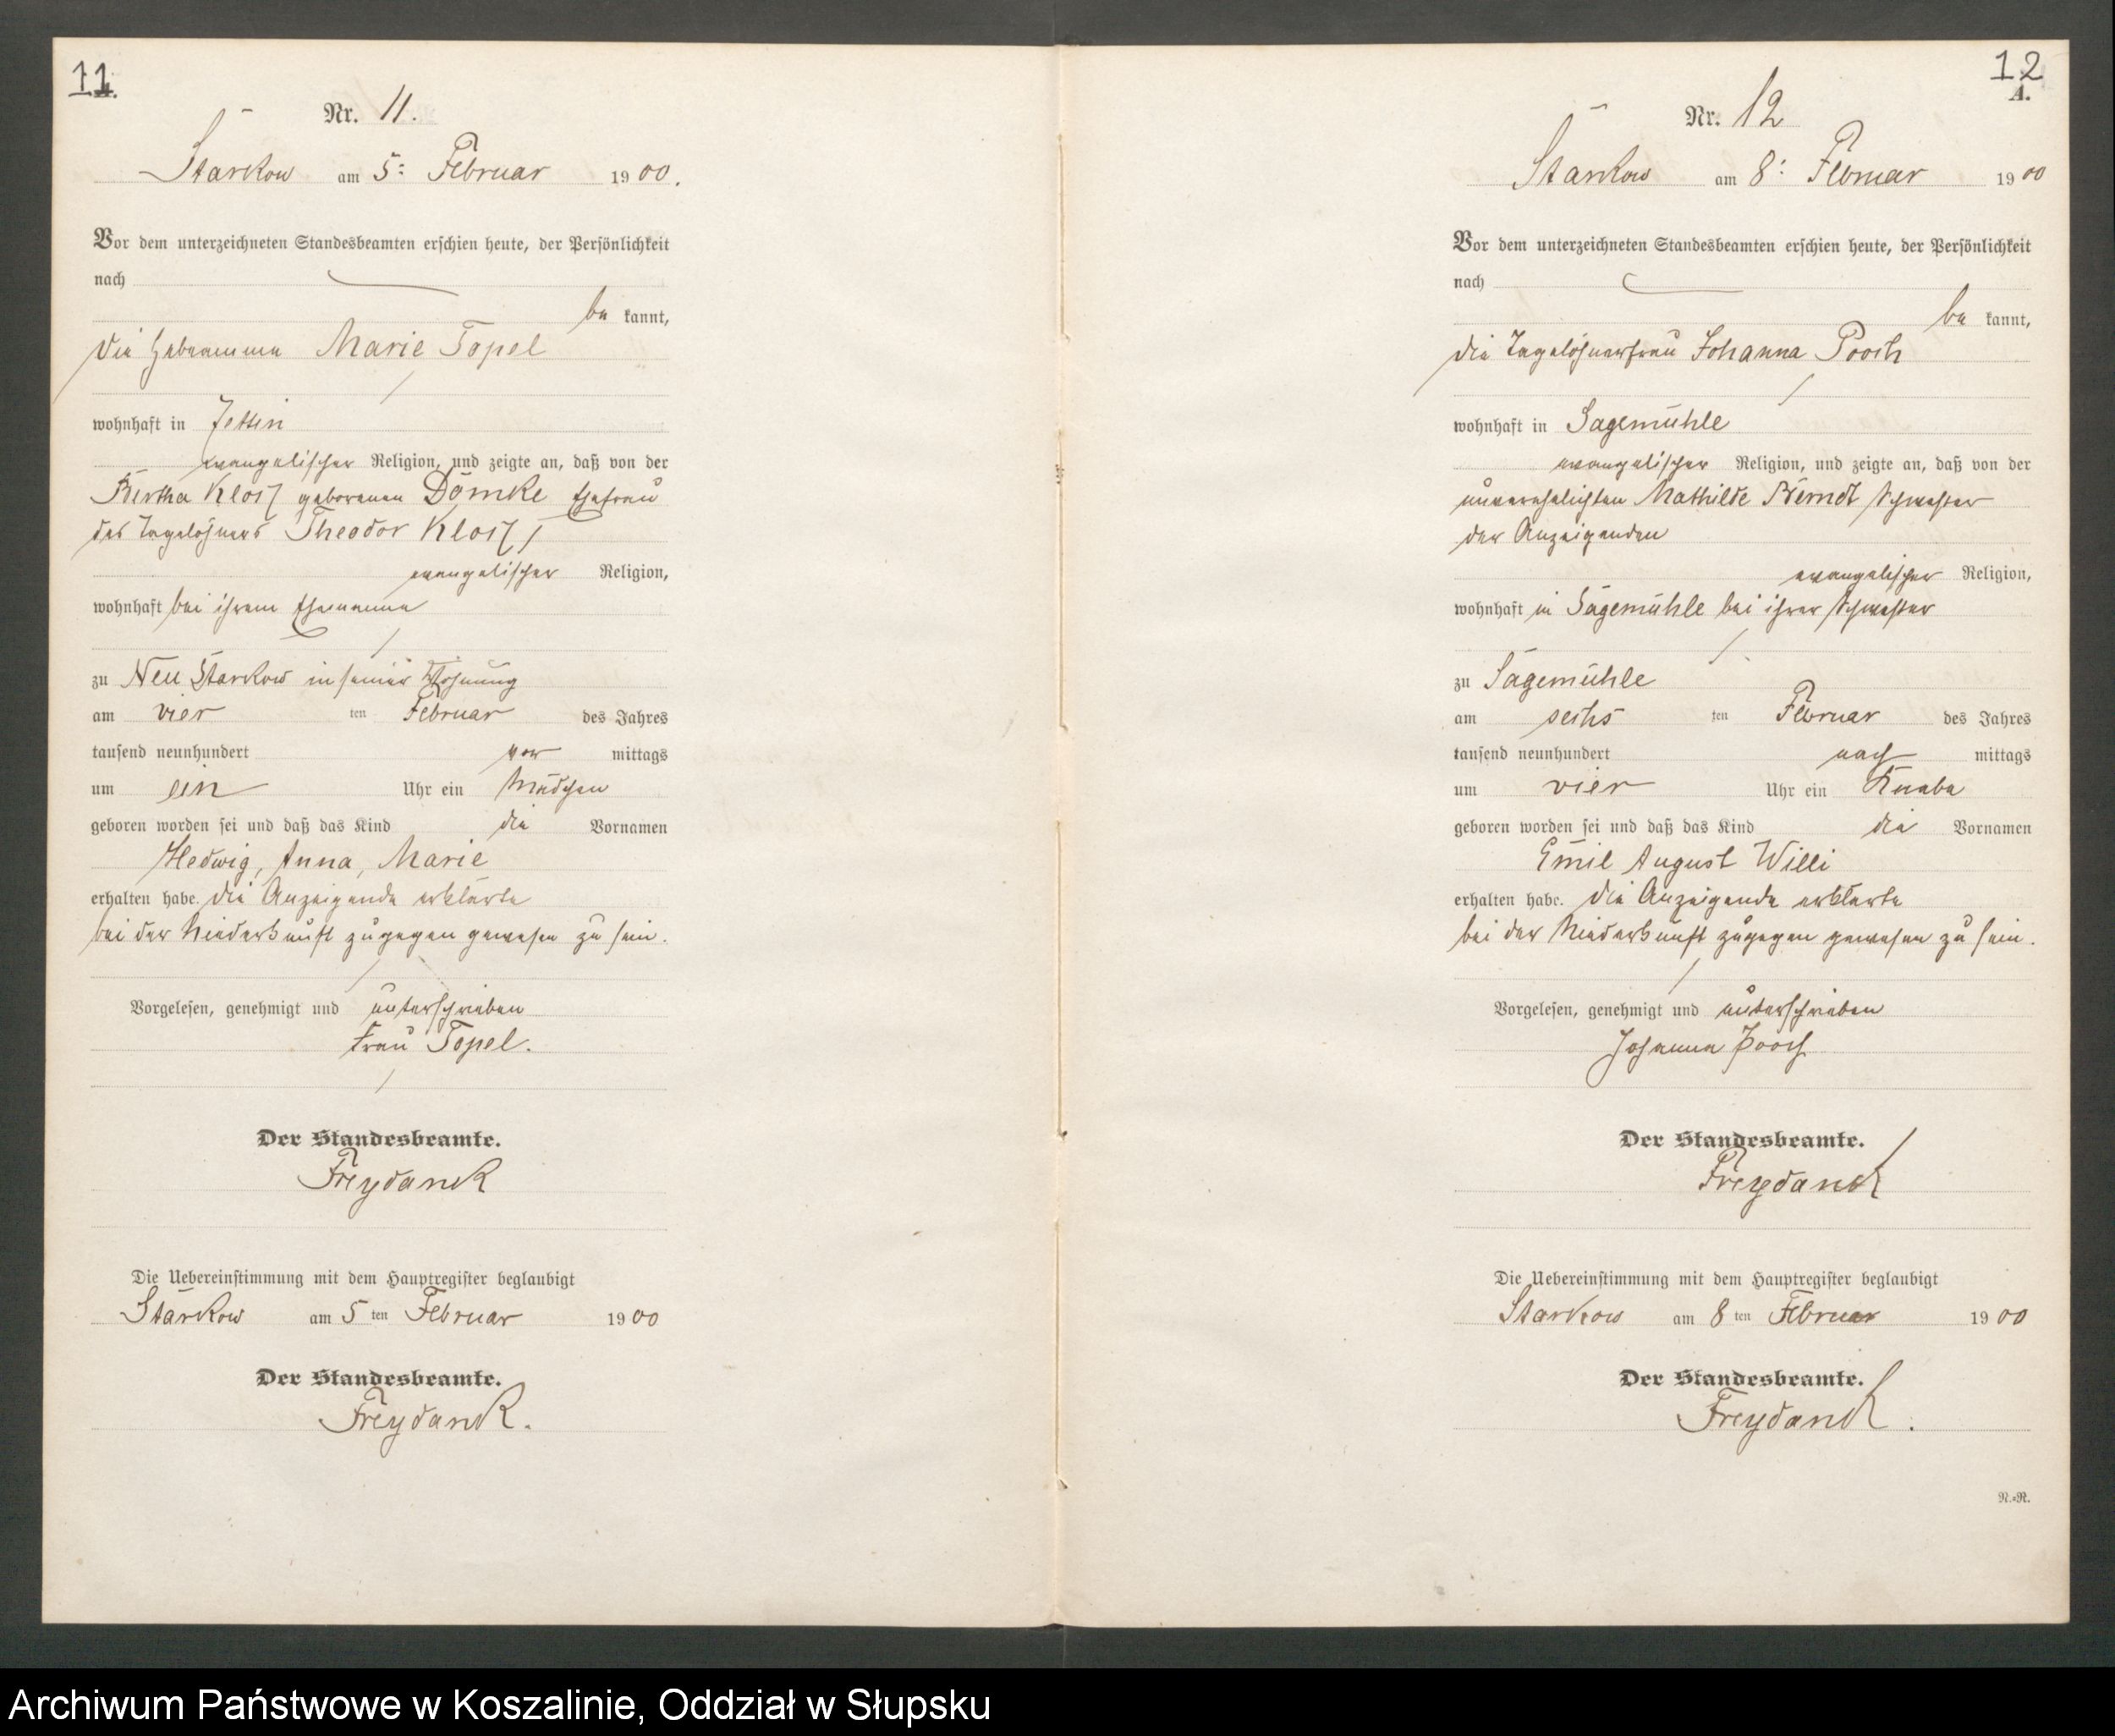 11
A.
Nr. 11.
Starkow am 5: Februar 1900.
Vor dem unterzeichneten Standesbeamten erschien heute, der Persönlichkeit
nach
be kannt,
die Hebeamme Marie Topel
wohnhaft in
evangelischer Religion, und zeigte an, daß von der
Bertha geborenen Dömke Ehefrau
des Tagelöhners Theodor
evangelischer Religion,
wohnhaft bei ihrem Ehemanne
zu Neu Starkow in seiner Wohnung
am vier ten Februar des Jahres
tausend neunhundert vor mittags
um ein Uhr ein Mädchen
geboren worden sei und daß das Kind die Vornamen
Hedwig, Anna, Marie
erhalten habe. Die Anzeigende erklärte
bei der Niederkunft zugegen gewesen zu sein.
Vorgelesen, genehmigt und unterschrieben
Frau Topel.
Der Standesbeamte.
Freydanck
Die Uebereinstimmung mit dem Hauptregister beglaubigt
Starkow am 5 ten Februar 1900
Der Standesbeamte.
Freydanck.
12
A.
Nr. 12
Starkow am 8: Februar 1900
Vor dem unterzeichneten Standesbeamten erschien heute, der Persönlichkeit
nach
be kannt,
die Tagelöhnerfrau Johanna Pooch
wohnhaft in Sagemühle
evangelischer Religion, und zeigte an, daß von der
unverehelichten Mathilde Berndt Schwester
der Anzeigenden
evangelischer Religion,
wohnhaft in Sägemühle bei ihrer Schwester
zu Sägemühle
am sechs ten Februar des Jahres
tausend neunhundert nach mittags
um vier Uhr ein Knabe
geboren worden sei und daß das Kind die Vornamen
Emil August Willi
erhalten habe. Die Anzeigende erklärte
bei der Niederkunft zugegen gewesen zu sein.
Vorgelesen, genehmigt und unterschrieben
Johanna Pooch
Der Standesbeamte.
Freydanck
Die Uebereinstimmung mit dem Hauptregister beglaubigt
Starkow am 8 ten Februar 1900
Der Standesbeamte.
Freydanck.
N.=R.
Archiwum Państwowe w Koszalinie, Oddział w Słupsku